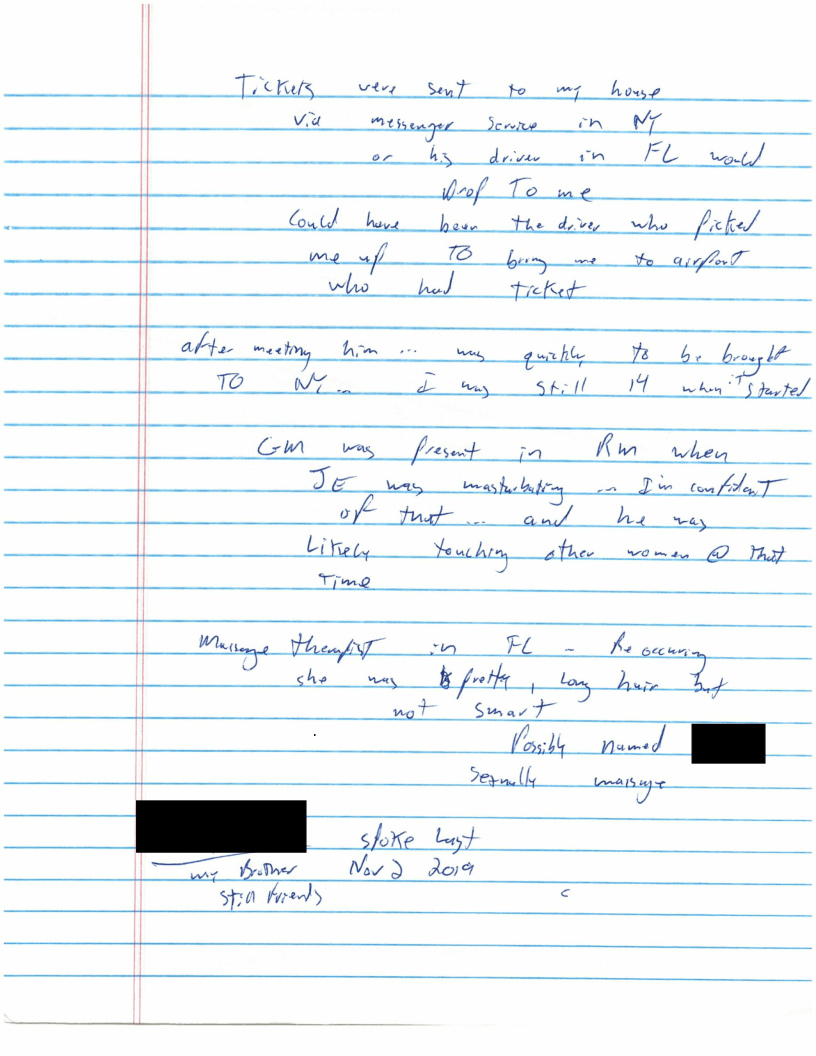 Tickets were sent to my house
via messenger service in NY
or his driver in FL would
Drop To me
Could have been the driver who picked
me up TO bring me to airport
who had ticket
after meeting him ... was quickly to be brought
TO NY... I was still 14 when it started
GM was present in Rm when
JE was masturbating ... I'm confident
of that ... and he was
Likely touching other women @ that
time
Massage therapist in FL - Reoccuring
she was pretty, Long hair but
not smart
Possibly named
Sexually massage
spoke Last
my Brother Nov 2 2019
still friends